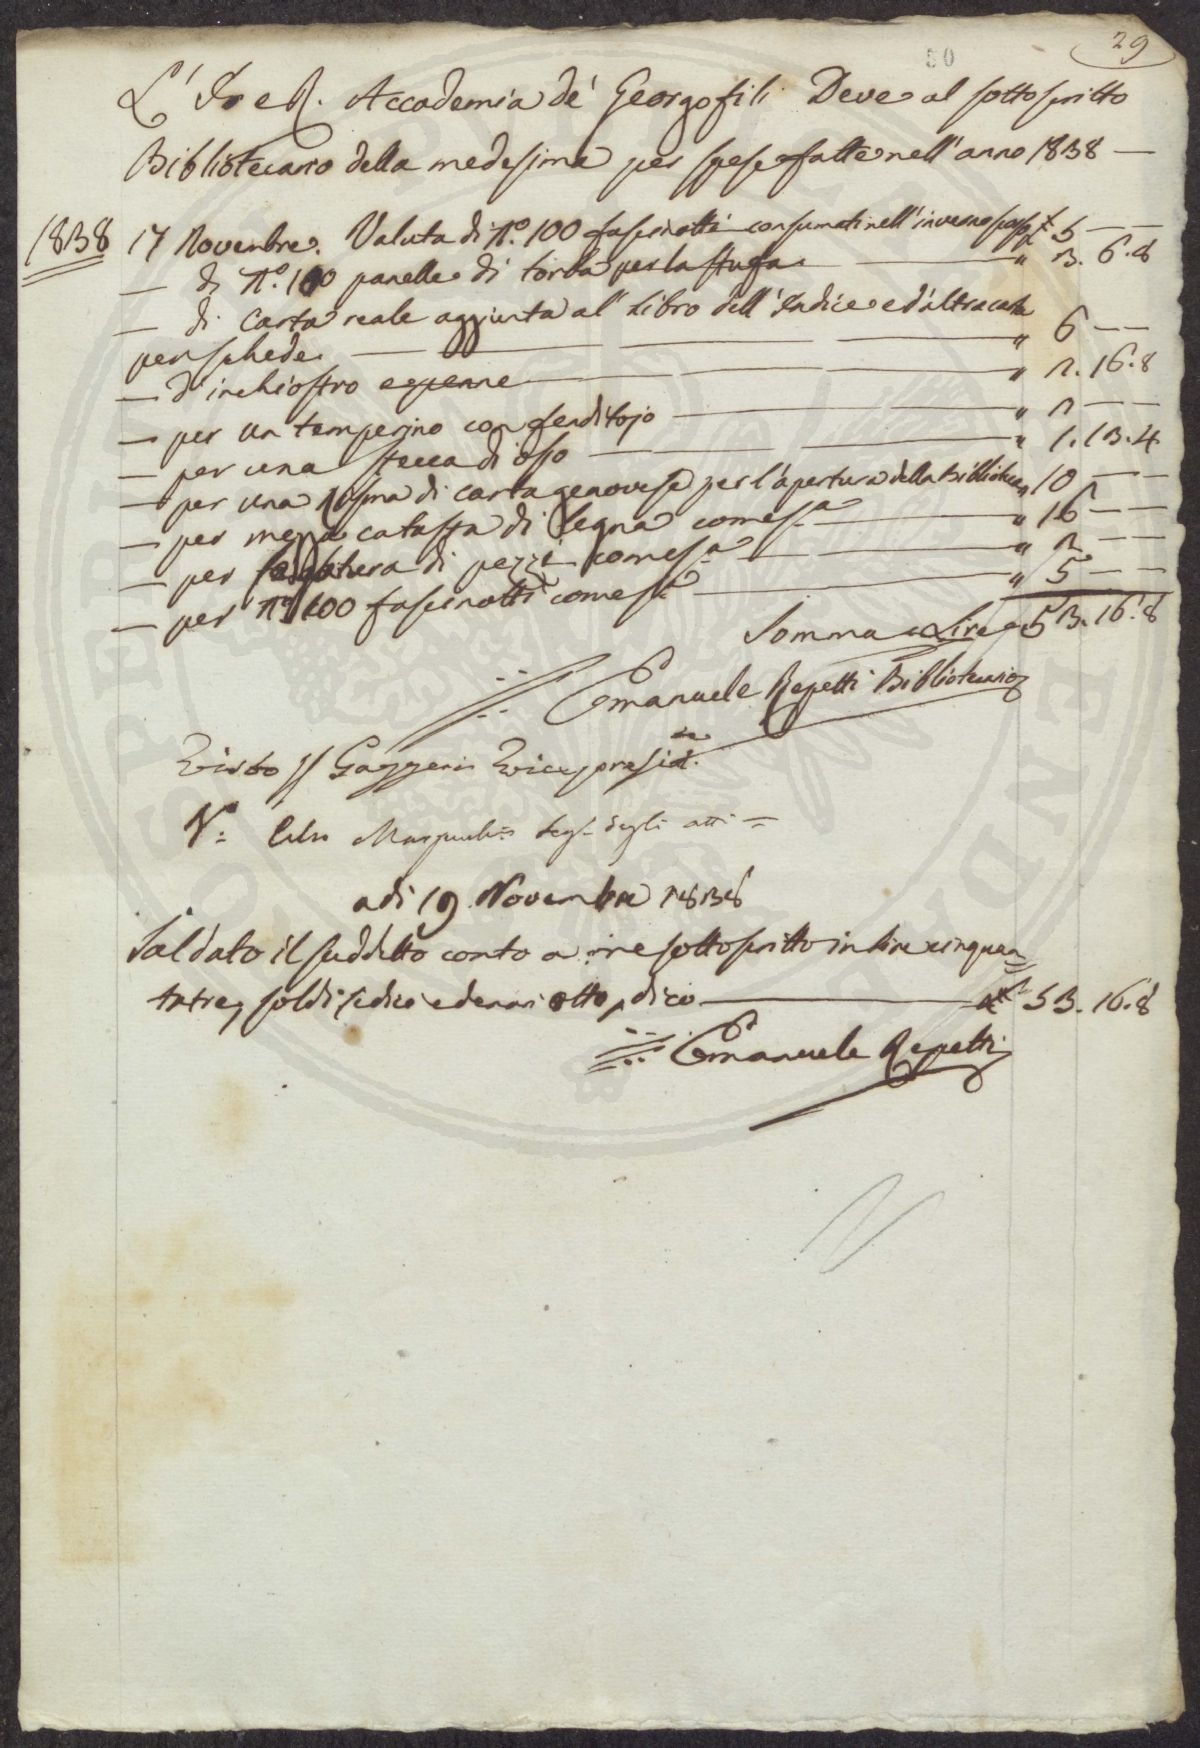 29
50
L'I. e R. Accademia de' Georgofili Deve al sottoscritto
Bibliotecario della medesima per spese fatte nell'anno 1838 —
1838 17 Novembre. Valuta di N.° 100 fascinotti consumati nell'inverno £ 5 — —
— di N.° 100 panelle di torba per la stufa — " 3. 6. 8
— di Carta reale aggiunta al Libro dell'Indice ed altra carta
per schede — " 6 — —
— d'inchiostro e penne — " 2. 16. 8
— per un temperino con fenditojo — " 2 — —
— per una stecca di osso — " 1. 13. 4
— per una risma di carta genovese per l'apertura della Biblioteca " 10 — —
— per mezza catasta di legna comesa — " 16 — —
— per di pezzi comesa — " 2 — —
— per N.° 100 fascinotti comesa — " 5 — —
Somma Lire 53. 16. 8
Emanuele Repetti Bibliotecario
Visto G Gazzeri Vicepresid.te
V.° degli atti =
adi 19 Novembre 1838
Saldato il suddetto conto a me sottoscritto in lire cinquan=
tatre, soldi sedici e denari otto, dico — £ 53. 16. 8
Emanuele Repetti